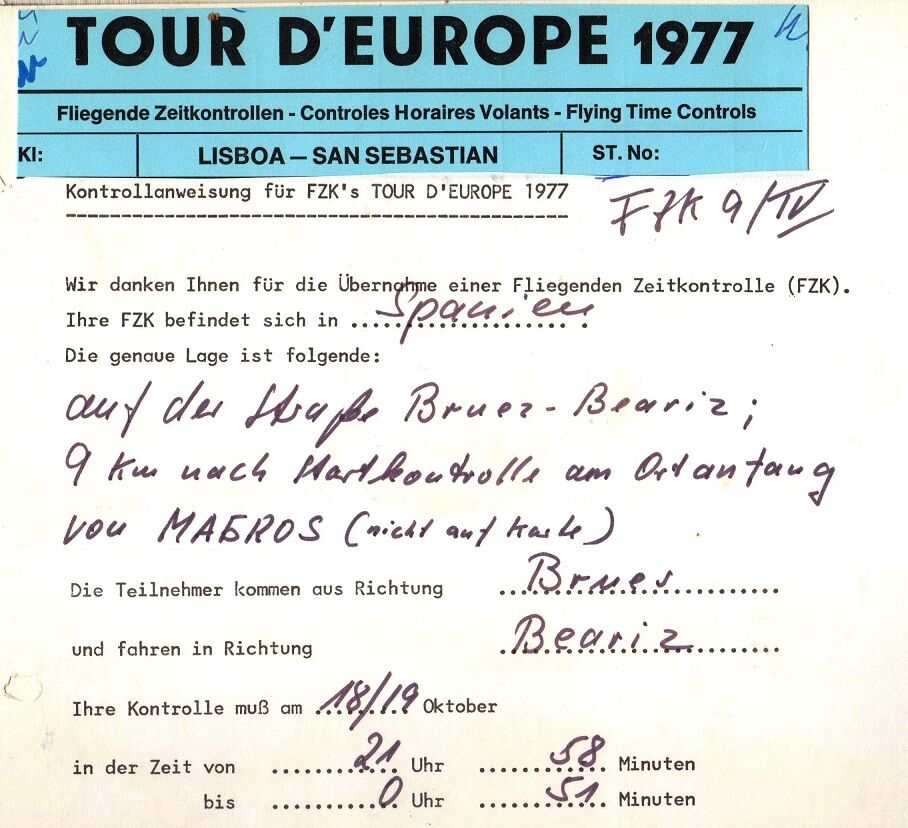 TOUR D'EUROPE 1977
Fliegende Zeitkontrollen - Controles Horaires Volants - Flying Time Controls
Kl:
LISBOA – SAN SEBASTIAN
ST. No:
Kontrollanweisung für FZK's TOUR D'EUROPE 1977
FZK 9/IV
Wir danken Ihnen für die Übernahme einer Fliegenden Zeitkontrolle (FZK).
Ihre FZK befindet sich in Spanien.
Die genaue Lage ist folgende:
auf der Straße Brues - Beariz;
9 Km nach Startkontrolle am Ortanfang
von MAGROS (nicht auf Karte)
Die Teilnehmer kommen aus Richtung Brues
und fahren in Richtung Beariz
Ihre Kontrolle muß am 18/19 Oktober
in der Zeit von 21 Uhr 58 Minuten
bis 0 Uhr 51 Minuten